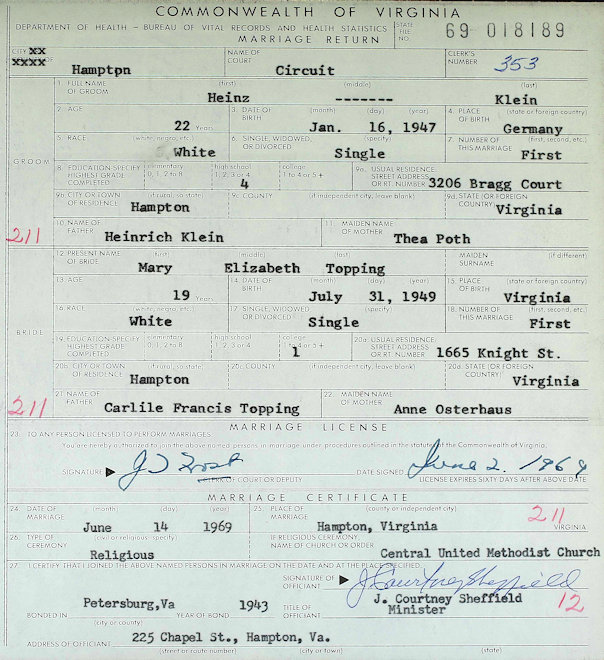 COMMONWEALTH OF VIRGINIA
DEPARTMENT OF HEALTH – BUREAU OF VITAL RECORDS AND HEALTH STATISTICS
MARRIAGE RETURN
STATE FILE NO. 69 018189
CITY XX
XXXX Hampton
NAME OF COURT Circuit
CLERK'S NUMBER 353
GROOM
1. FULL NAME OF GROOM (first) Heinz (middle) ------- (last) Klein
2. AGE 22 Years 3. DATE OF BIRTH (month) (day) (year) Jan. 16, 1947 4. PLACE OF BIRTH (state or foreign country) Germany
5. RACE (white, negro, etc.) White 6. SINGLE, WIDOWED OR DIVORCED (specify) Single 7. NUMBER OF THIS MARRIAGE (first, second, etc.) First
8. EDUCATION-SPECIFY HIGHEST GRADE COMPLETED elementary 0, 1, 2 to 8 high school 1, 2, 3 or 4 4 college 1 to 4 or 5+ 9a. USUAL RESIDENCE STREET ADDRESS OR RT. NUMBER 3206 Bragg Court
9b. CITY OR TOWN OF RESIDENCE (if rural, so state) Hampton 9c. COUNTY (if independent city, leave blank) 9d. STATE (OR FOREIGN COUNTRY) Virginia
211 10. NAME OF FATHER Heinrich Klein 11. MAIDEN NAME OF MOTHER Thea Poth
BRIDE
12. PRESENT NAME OF BRIDE (first) Mary (middle) Elizabeth (last) Topping MAIDEN SURNAME (if different)
13. AGE 19 Years 14. DATE OF BIRTH (month) (day) (year) July 31, 1949 15. PLACE OF BIRTH (state or foreign country) Virginia
16. RACE (white, negro, etc.) White 17. SINGLE, WIDOWED OR DIVORCED (specify) Single 18. NUMBER OF THIS MARRIAGE (first, second, etc.) First
19. EDUCATION-SPECIFY HIGHEST GRADE COMPLETED elementary 0, 1, 2 to 8 high school 1, 2, 3 or 4 college 1 to 4 or 5+ 1 20a. USUAL RESIDENCE STREET ADDRESS OR RT. NUMBER 1665 Knight St.
20b. CITY OR TOWN OF RESIDENCE (if rural, so state) Hampton 20c. COUNTY (if independent city, leave blank) 20d. STATE (OR FOREIGN COUNTRY) Virginia
211 21. NAME OF FATHER Carlile Francis Topping 22. MAIDEN NAME OF MOTHER Anne Osterhaus
MARRIAGE LICENSE
23. TO ANY PERSON LICENSED TO PERFORM MARRIAGES
You are hereby authorized to join the above named persons in marriage under procedures outlined in the statutes of the Commonwealth of Virginia.
SIGNATURE DATE SIGNED June 2. 1969
CLERK OF COURT OR DEPUTY LICENSE EXPIRES SIXTY DAYS AFTER ABOVE DATE
MARRIAGE CERTIFICATE
24. DATE OF MARRIAGE (month) (day) (year) June 14 1969 25. PLACE OF MARRIAGE (county or independent city) Hampton, Virginia 211 VIRGINIA
26. TYPE OF CEREMONY (civil or religious - specify) Religious IF RELIGIOUS CEREMONY NAME OF CHURCH OR ORDER Central United Methodist Church
27. I CERTIFY THAT I JOINED THE ABOVE NAMED PERSONS IN MARRIAGE ON THE DATE AND AT THE PLACE SPECIFIED.
SIGNATURE OF OFFICIANT J. Courtney Sheffield
BONDED IN Petersburg,Va (city or county) YEAR OF BOND 1943 TITLE OF OFFICIANT J. Courtney Sheffield
Minister 12
ADDRESS OF OFFICIANT 225 Chapel St., Hampton, Va.
(street or route number) (city or town) (state)